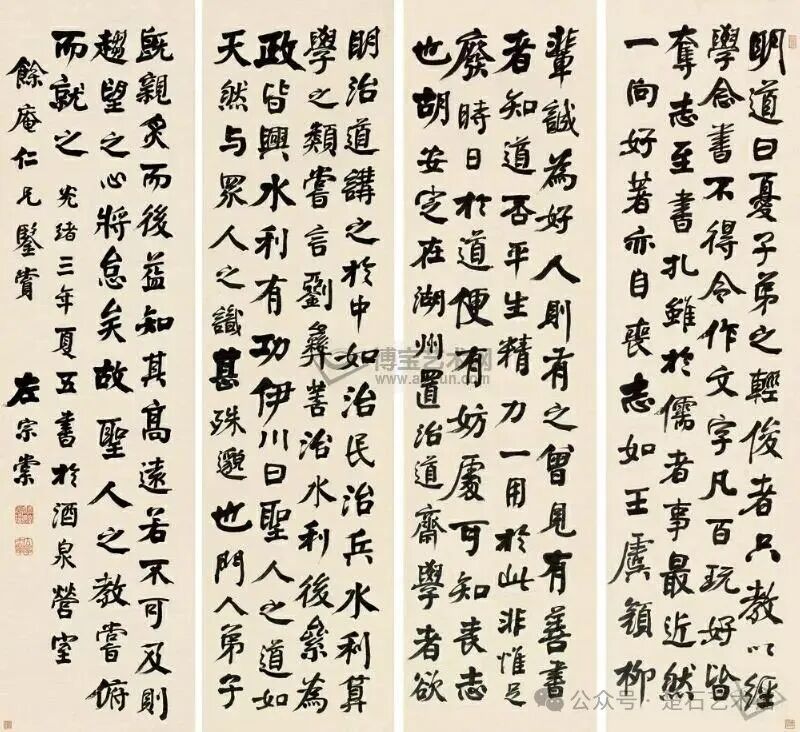 明道曰憂子弟之輕俊者只教以經
學念書不得令作文字凡百玩好皆
奪志至書札雖於儒者事最近然
一向好著亦自喪志如王虞顏柳
輩誠為好人則有之曾見有善書
者知道否平生精力一用於此非惟足
廢時日於道便有妨處可知喪志
也胡安定在湖州置治道齋學者欲
明治道講之於中如治民治兵水利算
學之類嘗言劉彝善治水利後累為
政皆興水利有功伊川曰聖人之道如
天然与眾人之識甚殊邈也門人弟子
既親炙而後益知其高遠若不可及則
趨望之心將怠矣故聖人之教嘗俯
而就之 光緒三年夏五書於酒泉營室
餘庵仁兄鑒賞 左宗棠
博宝艺术网
公众号